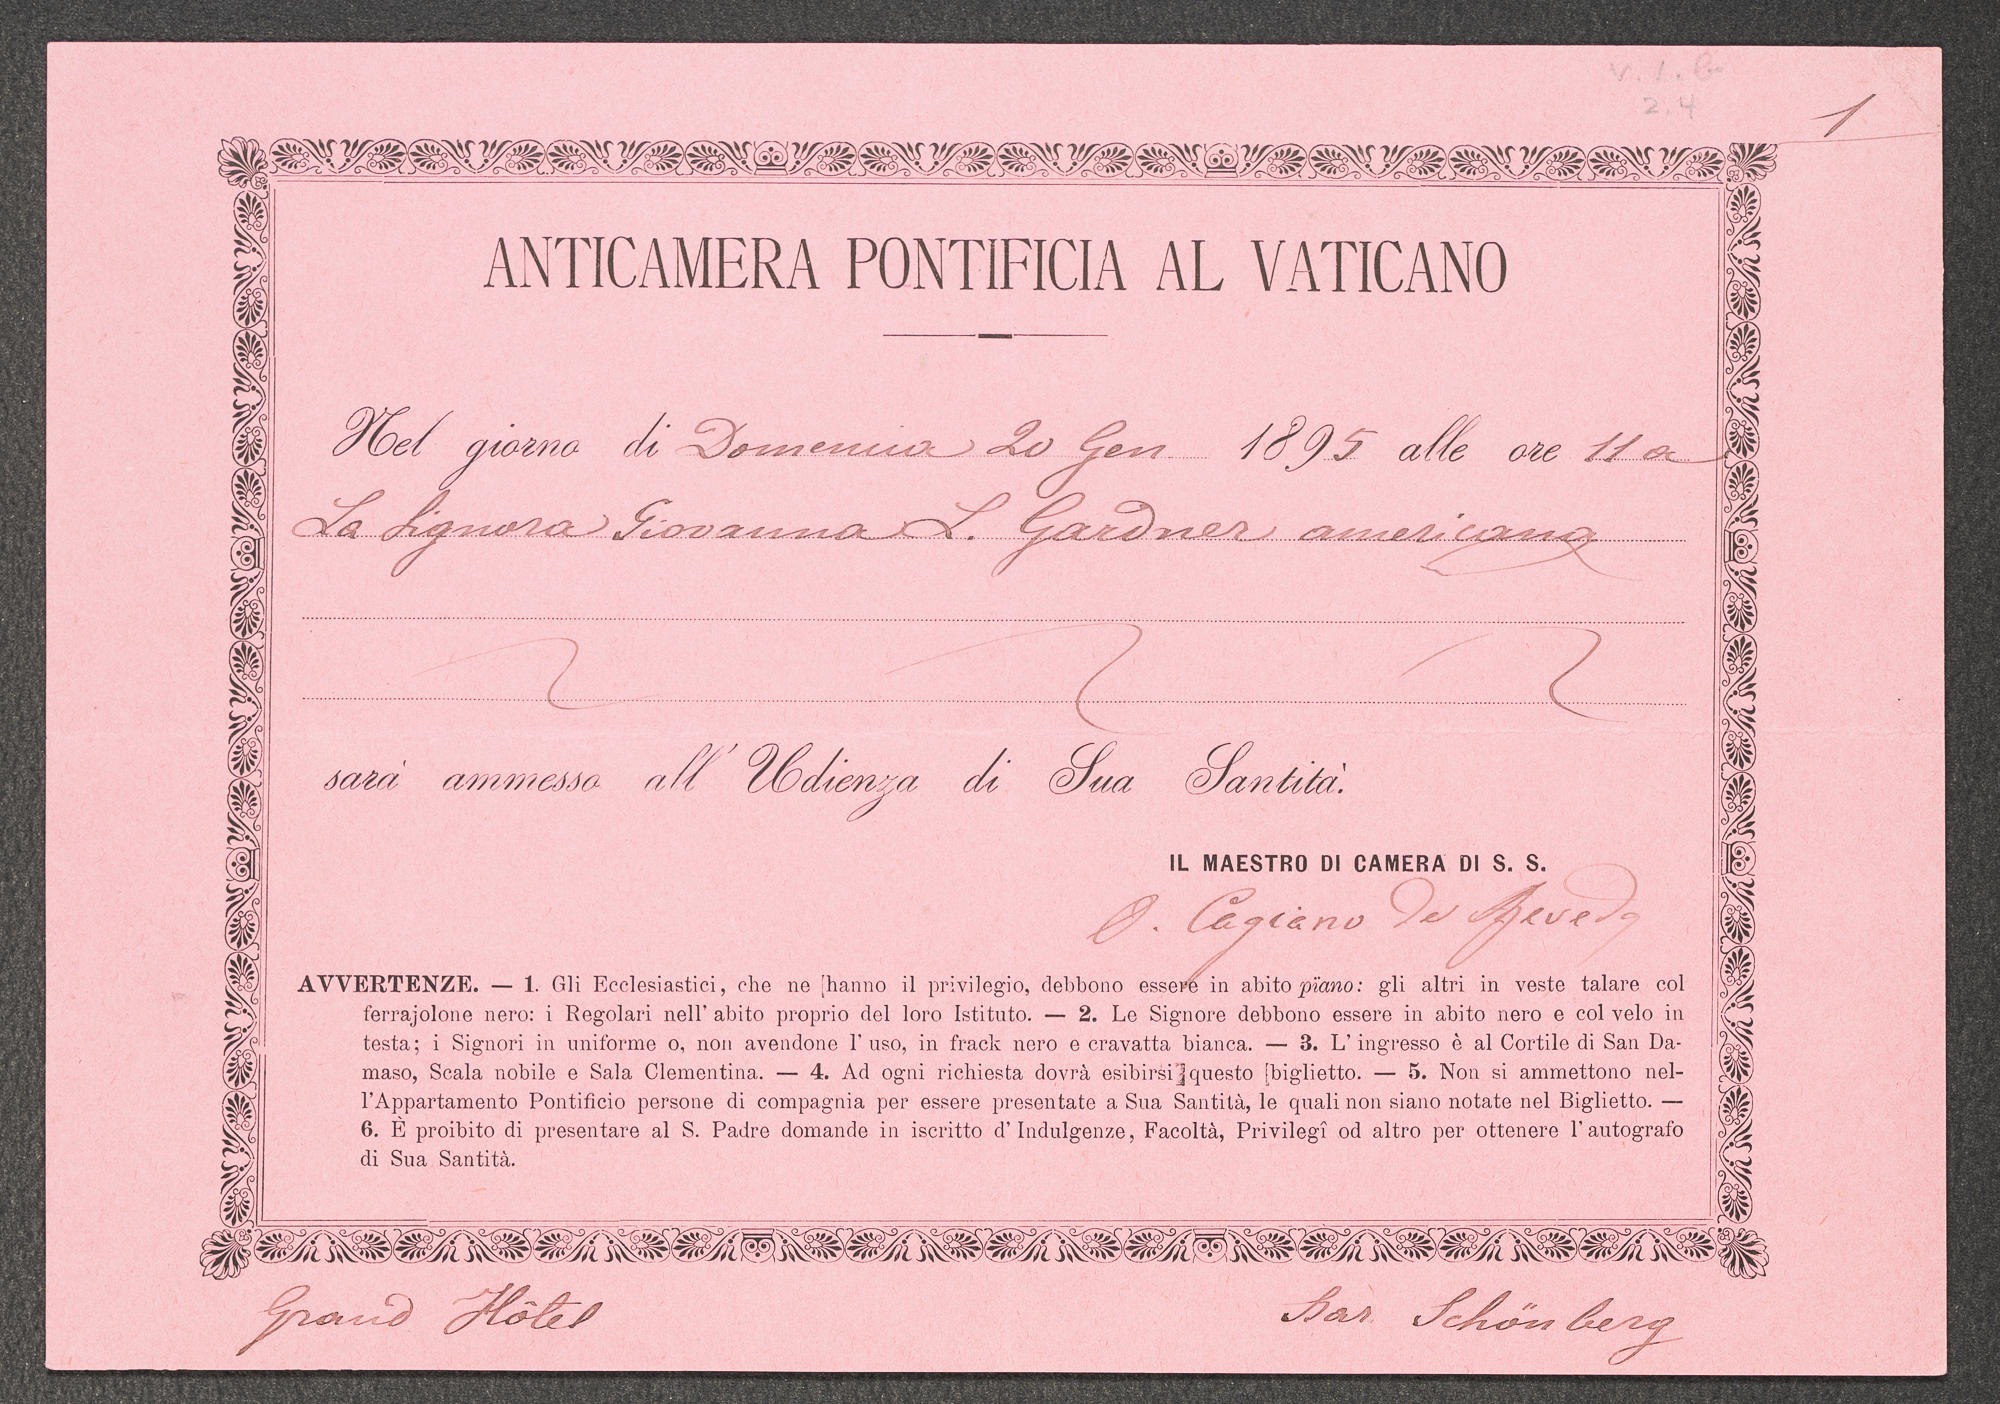 2.4
1
ANTICAMERA PONTIFICIA AL VATICANO
Nel giorno di Domenica 20 Gen 1895 alle ore 11 a
La Signora Giovanna L. Gardner americana
sarà ammesso all' Udienza di Sua Santità.
IL MAESTRO DI CAMERA DI S. S.
O. Cagiano de Azevedo
AVVERTENZE. — 1. Gli Ecclesiastici, che ne [hanno il privilegio, debbono essere in abito piano: gli altri in veste talare col
ferrajolone nero: i Regolari nell' abito proprio del loro Istituto. — 2. Le Signore debbono essere in abito nero e col velo in
testa; i Signori in uniforme o, non avendone l' uso, in frack nero e cravatta bianca. — 3. L' ingresso è al Cortile di San Da-
maso, Scala nobile e Sala Clementina. — 4. Ad ogni richiesta dovrà esibirsi] questo [biglietto. — 5. Non si ammettono nel-
l'Appartamento Pontificio persone di compagnia per essere presentate a Sua Santità, le quali non siano notate nel Biglietto. —
6. È proibito di presentare al S. Padre domande in iscritto d' Indulgenze, Facoltà, Privilegî od altro per ottenere l'autografo
di Sua Santità.
Grand Hôtel
Bar. Schönberg